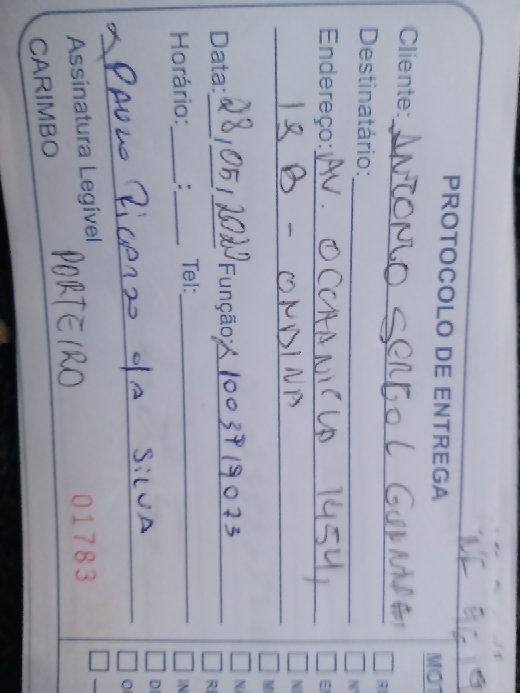 PROTOCOLO DE ENTREGA
Cliente: ANTONIO
Destinatário:
Endereço: AV. OCEANICA 1454,
18 B - ONDINA
Data: 28,05,2020 Função: X 1003919073
Horário: : Tel:
X PAULO RICARDO DA SILVA
Assinatura Legível PORTEIRO
CARIMBO
01783